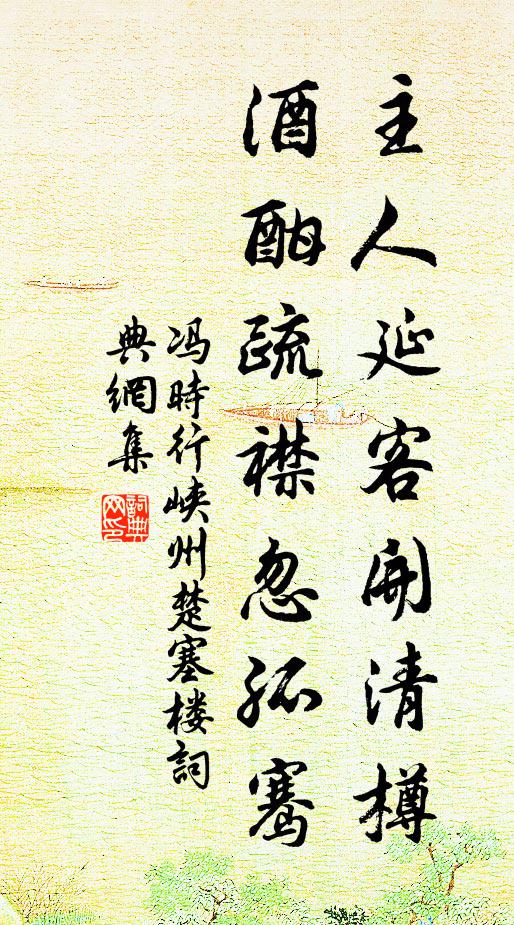 主人延客開清樽
酒酣疏襟忽孤骞
冯時行峡州楚塞楼詞
典網集
詞典网印